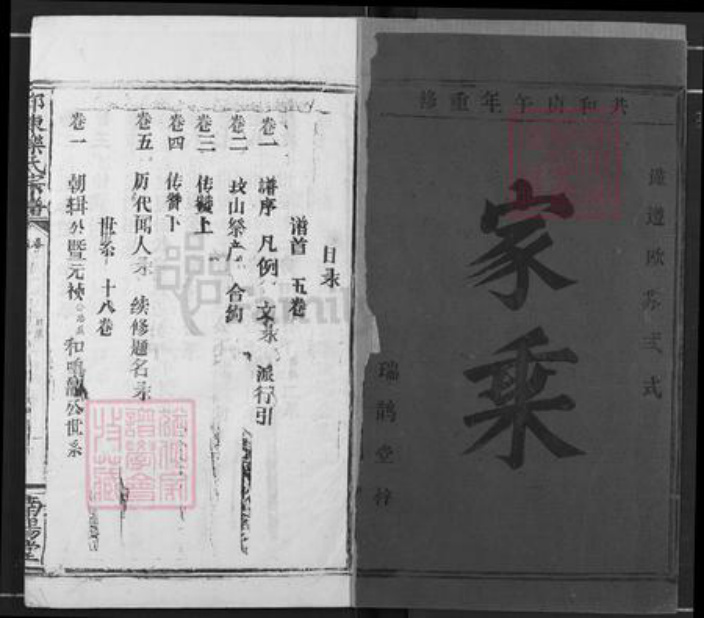 共和丙午年重修
谨遵欧苏弍式
家乘
瑞鹊堂梓
目录
谱首 五卷
卷一 谱序 凡例 文录 派行引
卷二 坟山祭产 合约
卷三 传赞上
卷四 传赞下
卷五 历代闻人录 续修题名录
世系 十八卷
卷一 朝辑公暨元祯 和 公世系
东 氏宗谱
南阳堂